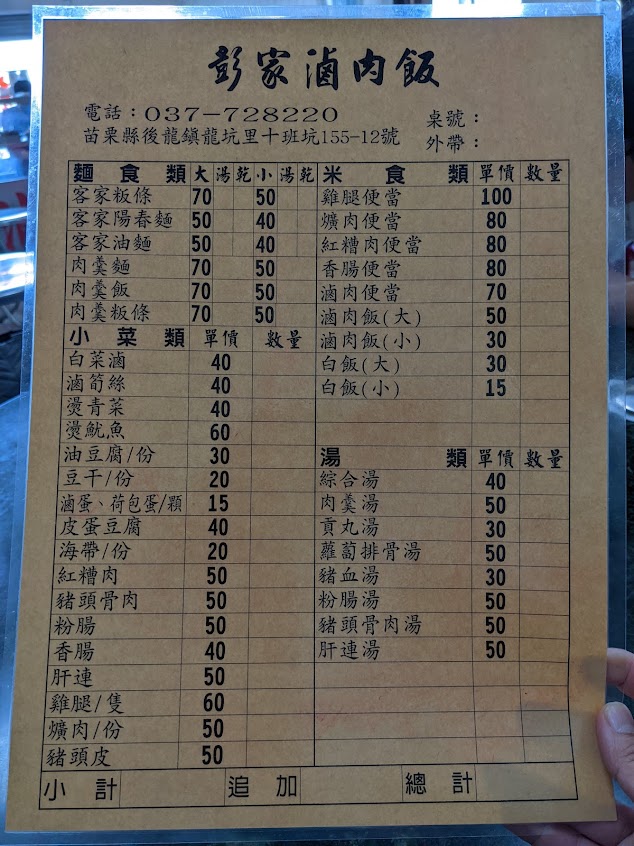 彭家滷肉飯
電話：037-728220
苗栗縣後龍鎮龍坑里十班坑155-12號
桌號：
外帶：
麵食類 大 湯 乾 小 湯 乾
客家粄條 70 50
客家陽春麵 50 40
客家油麵 50 40
肉羹麵 70 50
肉羹飯 70 50
肉羹粄條 70 50
小菜類 單價 數量
白菜滷 40
滷筍絲 40
燙青菜 40
燙魷魚 60
油豆腐/份 30
豆干/份 20
滷蛋、荷包蛋/顆 15
皮蛋豆腐 40
海帶/份 20
紅糟肉 50
豬頭骨肉 50
粉腸 50
香腸 40
肝連 50
雞腿/隻 60
爌肉/份 50
豬頭皮 50
米食類 單價 數量
雞腿便當 100
爌肉便當 80
紅糟肉便當 80
香腸便當 80
滷肉便當 70
滷肉飯(大) 50
滷肉飯(小) 30
白飯(大) 30
白飯(小) 15
湯類 單價 數量
綜合湯 40
肉羹湯 50
貢丸湯 30
蘿蔔排骨湯 50
豬血湯 30
粉腸湯 50
豬頭骨肉湯 50
肝連湯 50
小計 追加 總計